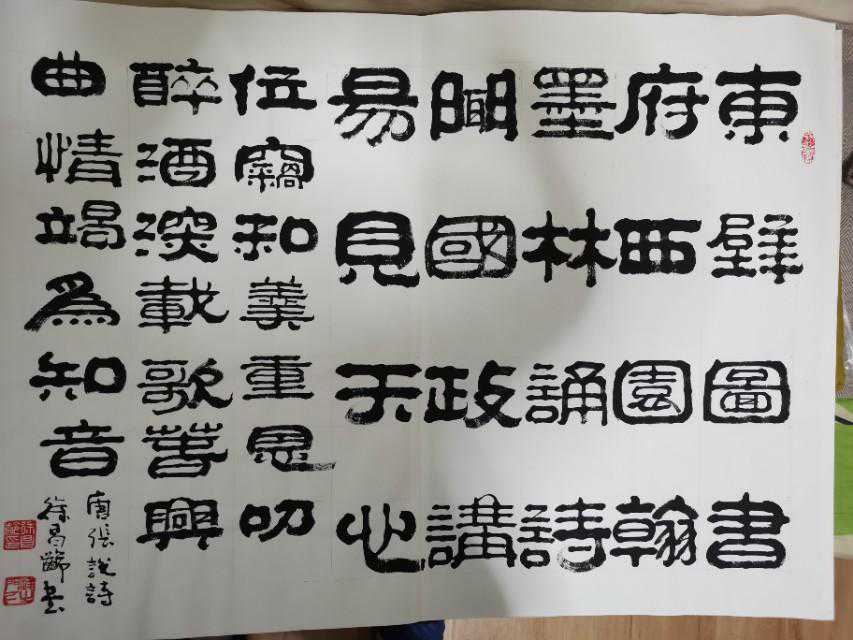 東壁圖書
府西園翰
墨林誦詩
聞國政講
易見天心
位竊和羹重恩叨
醉酒深載歌春興
曲情竭為知音
唐張說詩
徐昌書